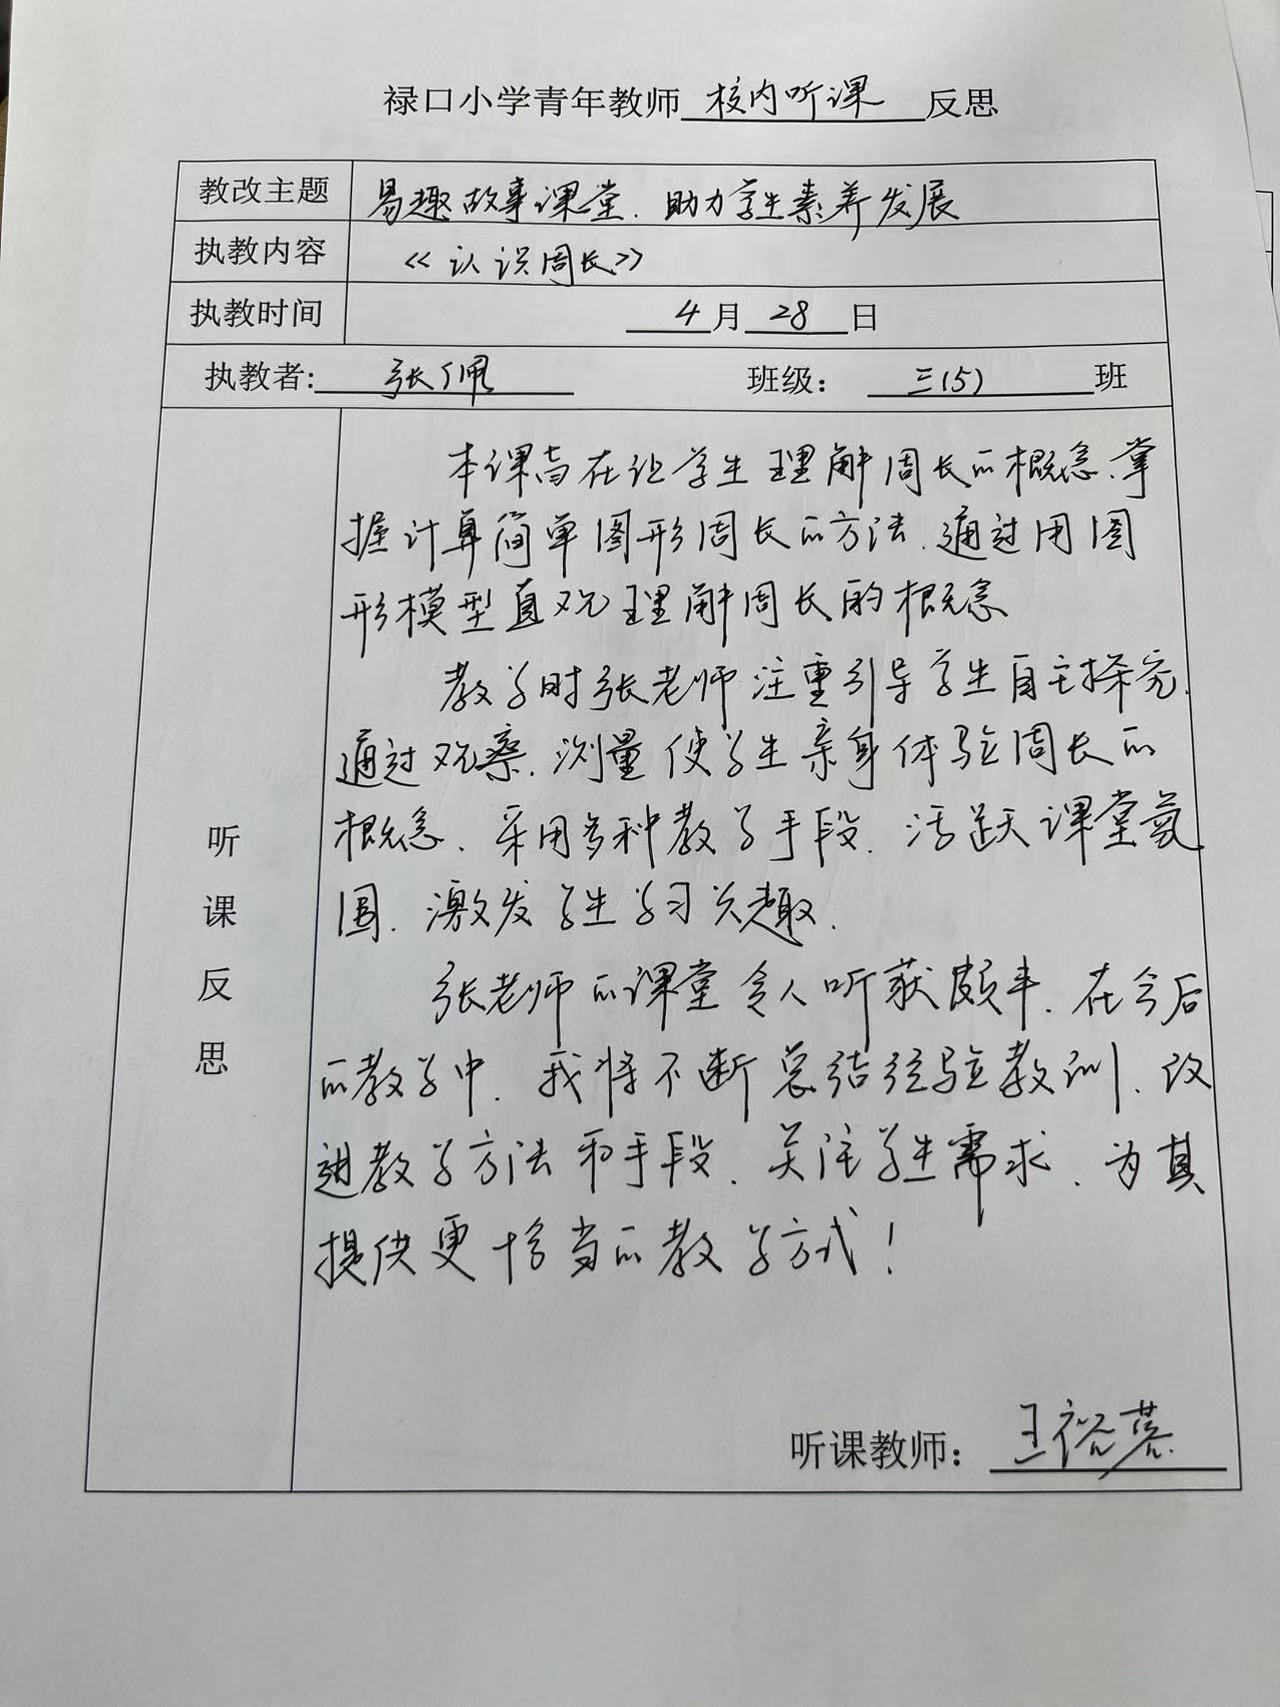 禄口小学青年教师校内听课反思
教改主题 易趣故事课堂.助力学生素养发展
执教内容 《认识周长》
执教时间 4月28日
执教者:张佩 班级：三(5)班
听课反思
本课旨在让学生理解周长的概念、掌
握计算简单图形周长的方法.通过用图
形模型直观理解周长的概念
教学时张老师注重引导学生自主探究.
通过观察.测量使学生亲身体验周长的
概念、采用多种教学手段.活跃课堂氛
围.激发学生学习兴趣.
张老师的课堂令人听获颇丰.在今后
的教学中.我将不断总结经验教训、改
进教学方法和手段.关注学生需求、为其
提供更恰当的教学方式！
听课教师：王裕蓉